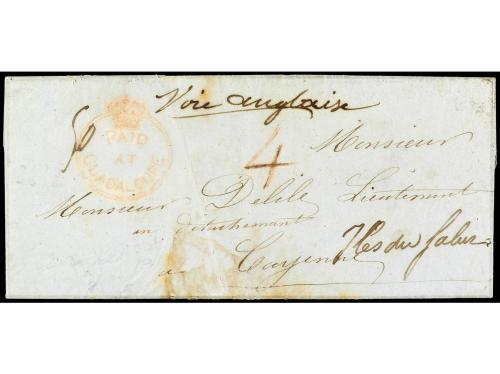 Voie anglaise
PAID
AT
GUADALOUPE
4
Monsieur
Monsieur Delile Lieutenant
en détachement
a Cayenne Iles du Salut